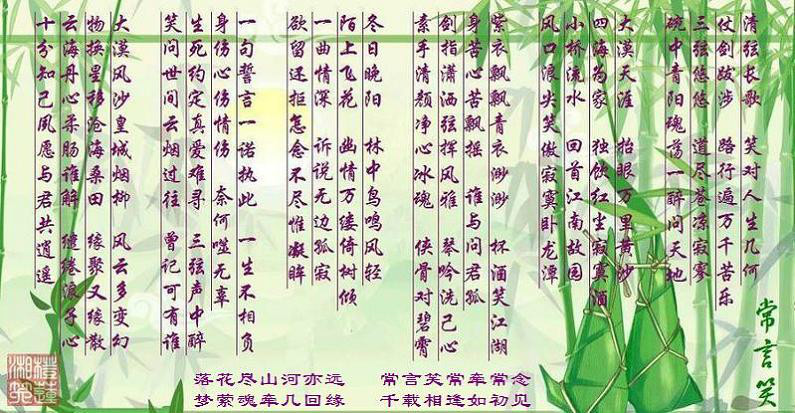 清弦长歌 笑对人生几何
仗剑故涉 路行遍万千苦乐
三弦悠悠 道尽苍凉寂寥
碗中青阳魂荡一醉问天地
大漠天涯 抬眼万里黄沙
四海为家 独饮红尘寂寞酒
小桥流水 回首江南故园
风口浪尖笑傲寂寞卧龙潭
紫衣飘飘青衣渺渺 杯酒笑江湖
身苦心苦飘摇 谁与问君孤
剑指潇洒弦挥风雅 琴吟洗己心
素手清颜净心冰魂 侠骨对碧霄
冬日晚阳 林中鸟鸣风轻
陌上飞花 幽情万缕倚树倾
一曲情深 诉说无边孤寂
欲留还拒怎念不尽惟凝眸
一句誓言一诺执此 一生不相负
身伤心伤情伤 奈何噬无辜
生死约定真爱难寻 三弦声中醉
笑问世间云烟过往 曾记可有谁
大漠风沙皇城烟柳 风云多变幻
物换星移沧海桑田 缘聚又缘散
云海丹心柔肠谁解 缱绻浪子心
十分知己夙愿与君共逍遥
常言笑
落花尽山河亦远 常言笑常牵常念
梦萦魂牵几回缘 千载相逢如初见